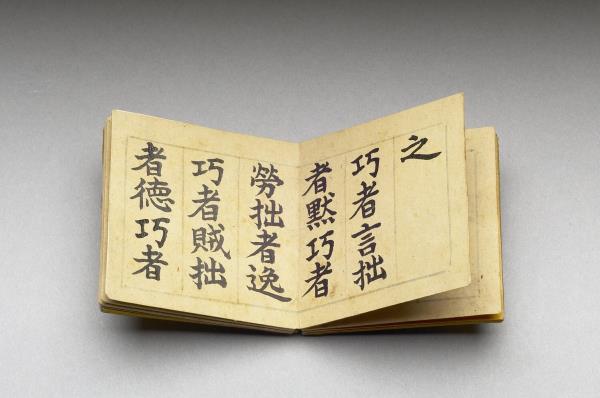 之
巧者言拙
者黙巧者
勞拙者逸
巧者賊拙
者德巧者